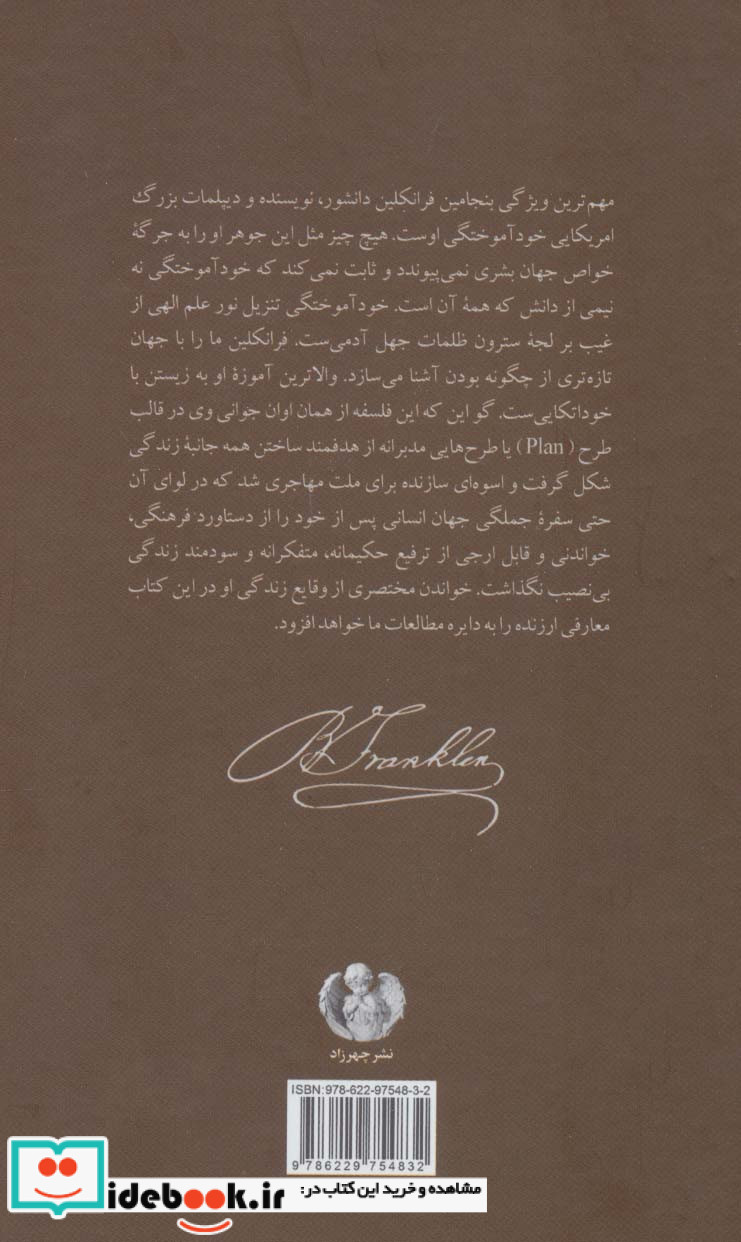 مهم‌ترین ویژگی بنجامین فرانکلین دانشور، نویسنده و دیپلمات بزرگ
امریکایی خودآموختگی اوست. هیچ چیز مثل این جوهر او را به جرگهٔ
خواص جهان بشری نمی‌پیوندد و ثابت نمی‌کند که خودآموختگی نه
نیمی از دانش که همهٔ آن است. خودآموختگی تنزیل نور علم الهی از
غیب بر لجهٔ سترون ظلمات جهل آدمی‌ست. فرانکلین ما را با جهان
تازه‌تری از چگونه بودن آشنا می‌سازد. والاترین آموزهٔ او به زیستن با
خوداتکایی‌ست. گو این که این فلسفه از همان اوان جوانی وی در قالب
طرح (Plan) یا طرح‌هایی مدبرانه از هدفمند ساختن همه جانبهٔ زندگی
شکل گرفت و اسوه‌ای سازنده برای ملت مهاجری شد که در لوای آن
حتی سفرهٔ جملگی جهان انسانی پس از خود را از دستاورد فرهنگی،
خواندنی و قابل ارجی از ترفیع حکیمانه، متفکرانه و سودمند زندگی
بی‌نصیب نگذاشت. خواندن مختصری از وقایع زندگی او در این کتاب
معارفی ارزنده را به دایره مطالعات ما خواهد افزود.
B Franklin
نشر چهرزاد
ISBN:978-622-97548-3-2
9 786229 754832
مشاهده و خرید این کتاب در:
idebook.ir